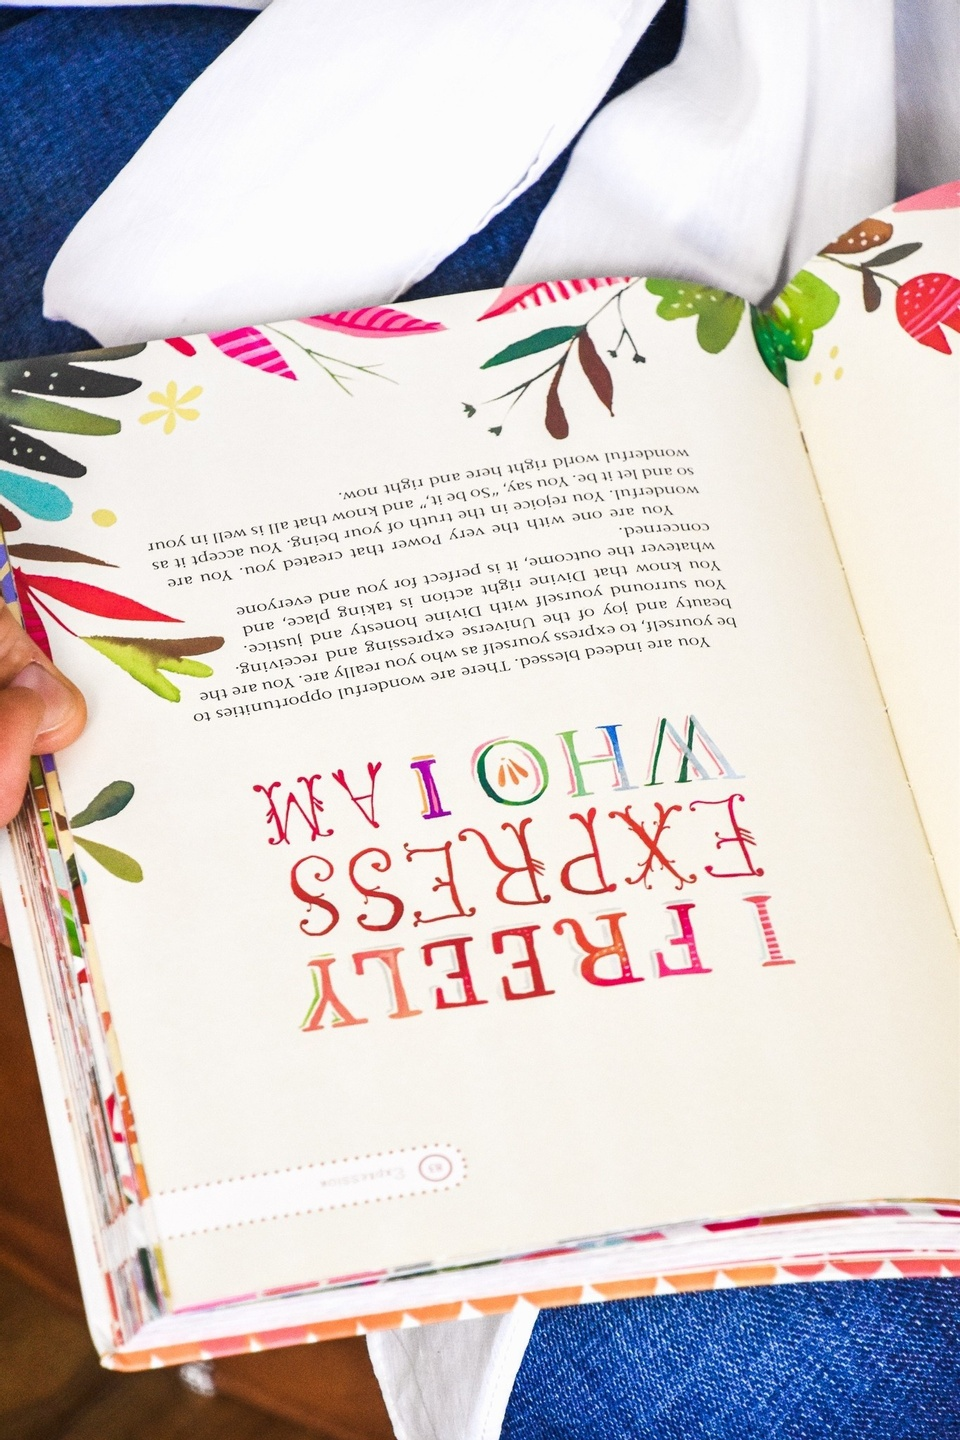 Expression
83
I FREELY
EXPRESS
WHO I AM
You are indeed blessed. There are wonderful opportunities to
be yourself, to express yourself as who you really are. You are the
beauty and joy of the Universe expressing and receiving.
You surround yourself with Divine honesty and justice.
You know that Divine right action is taking place, and
whatever the outcome, it is perfect for you and everyone
concerned.
You are one with the very Power that created you. You are
wonderful. You rejoice in the truth of your being. You accept it as
so and let it be. You say, “So be it,”, and know that all is well in your
wonderful world right here and right now.